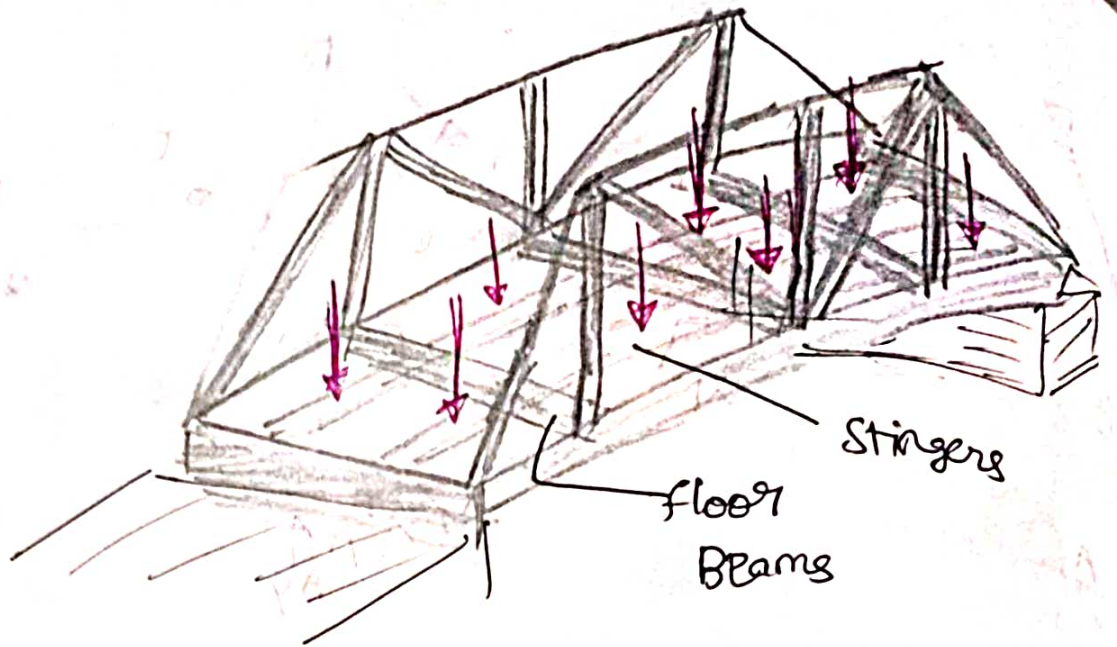 Stingers
floor
Beams